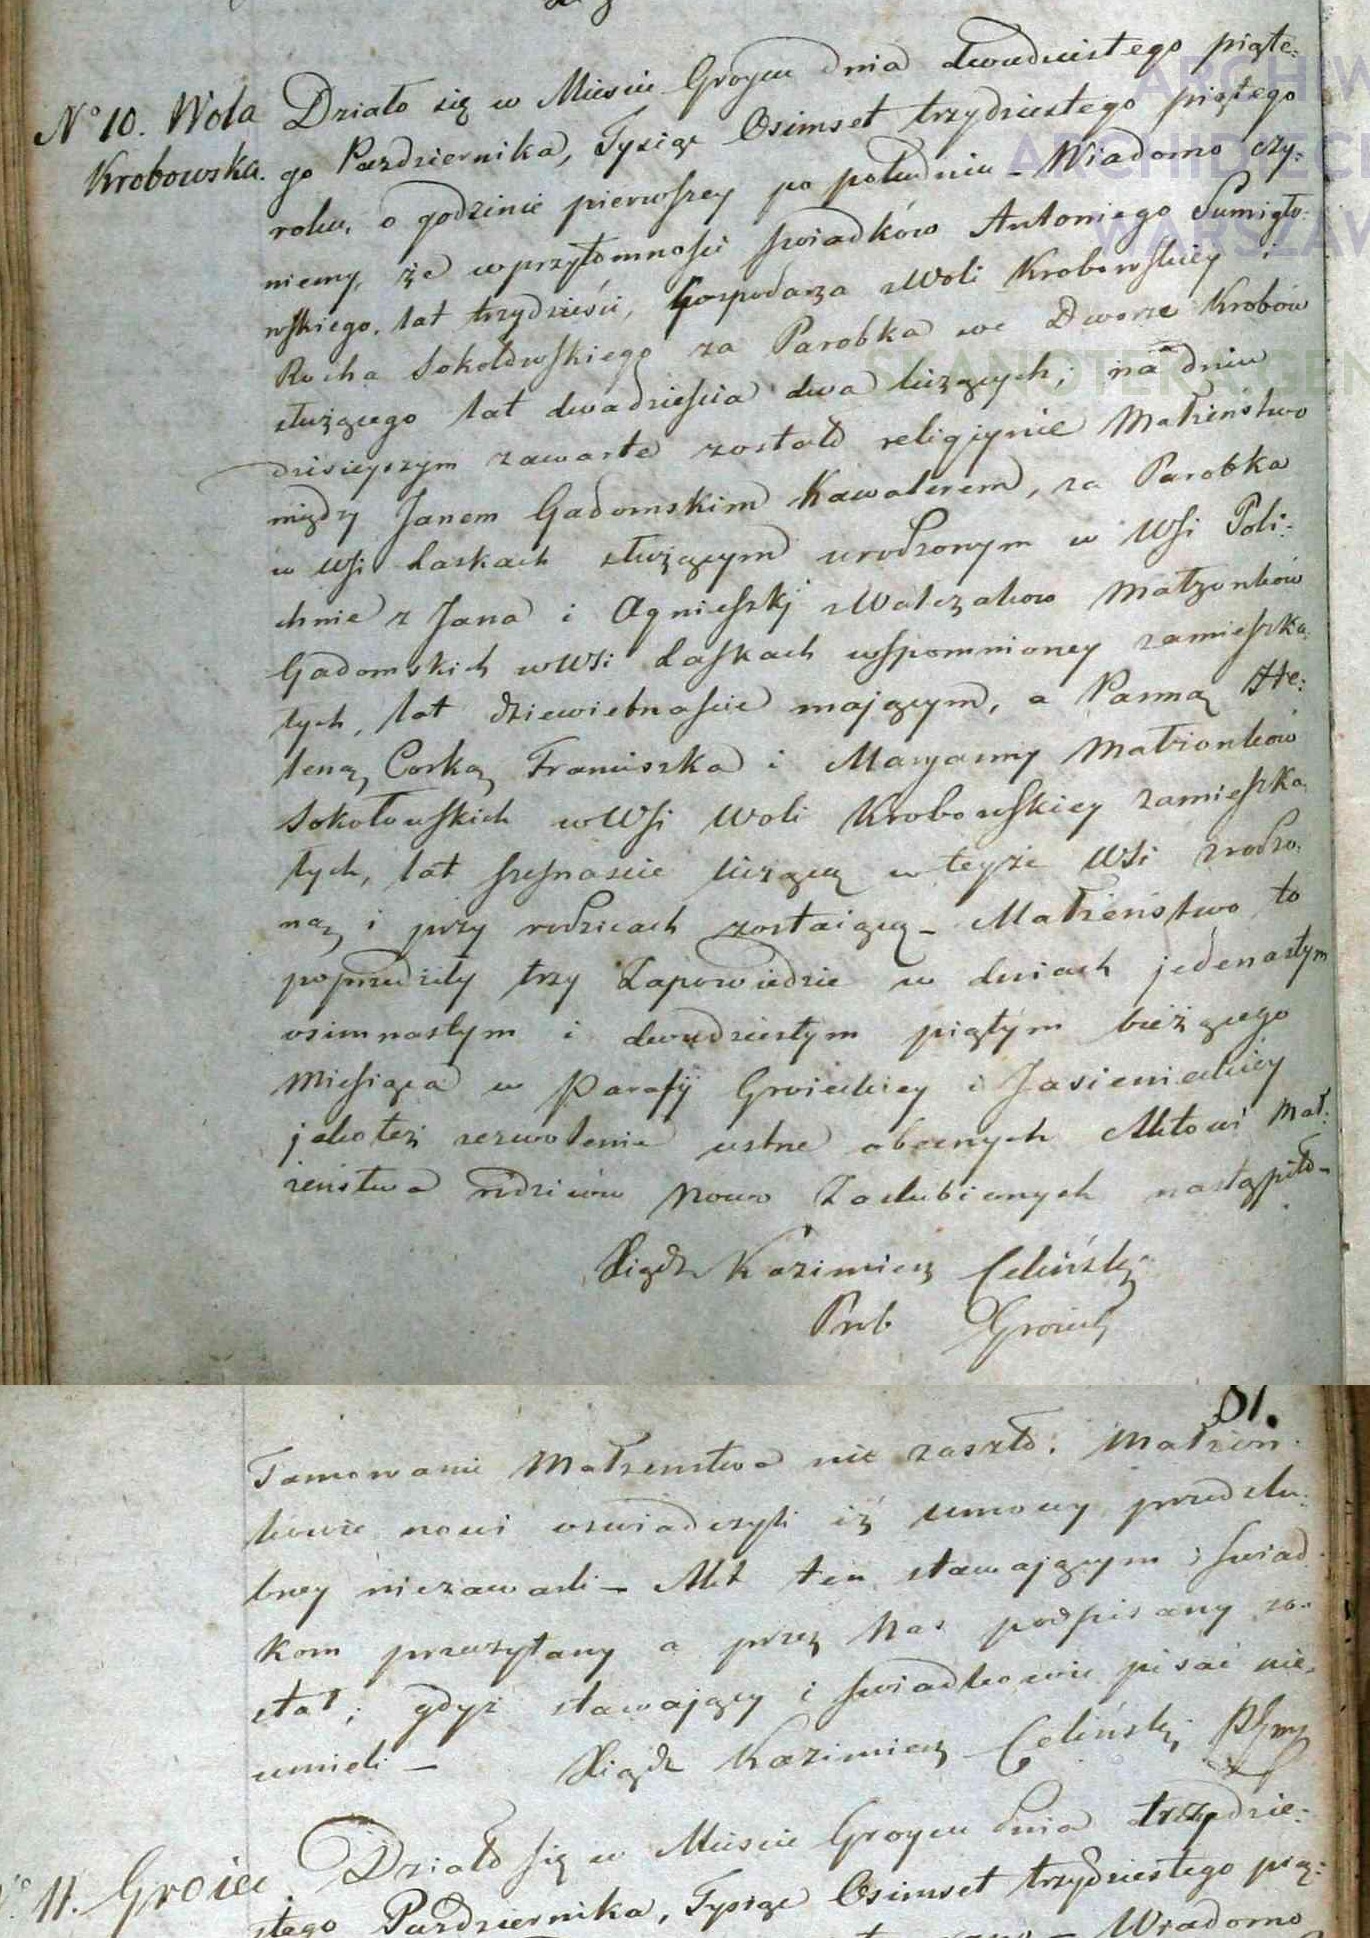 No 10. Wola
Krobowska.
Działo się w Mieście Groycu dnia dwudziestego piąte:
go Pazdziernika, Tysiąc Osimset trzydziestego piątego
roku, o godzinie pierwszey po południu – Wiadomo czy:
niemy, że wprzytomności swiadków Antoniego Sumigło:
wskiego, lat trzydzieści, Gospodarza z Woli Krobowskiey i
Rocha Sokołowskiego za Parobka we Dworze Krobów
służącego lat dwadzieścia dwa liczących; na dniu
dzisieyszym zawarte zostało religiynie Małżeństwo
między Janem Gadomskim Kawalerem, za Parobka
w wsi Laskach służącym urodzonym w Wsi Poli:
chnie z Jana i Agnieszki z Walczaków Małżonków
Gadomskich w Wsi Laskach wspomnioney zamieszka:
łych, lat dziewietnaście mającym, a Panną He:
leną, Corką Franciszka i Maryanny Małżonków
Sokołowskich w Wsi Woli Krobowskiey zamieszka:
łych, lat szesnaście liczącą w teyże Wsi zrodzo:
ną i przy rodzicach zostaiącą – Małżeństwo to
poprzedziły trzy Zapowiedzie w dniach jedenastym
osimnastym i dwudziestym piątym bieżącego
Miesiąca w Parafij Groieckiey i Jasienieckiey
jakoteż zezwolenie ustne obecnych Aktowi Mał:
żeństwa rodziców Nowo Zaslubionych nastąpiło –
Xiądz Kazimierz Celiński
Prob Groiecki
81.
Tamowanie Małżenstwa nie zaszło. Małżon:
kowie nowi oswiadczyli iż umowy przedslu:
bney niezawarli – Akt ten stawającym i swiad:
kom przeczytany a przez Nas podpisany zo:
stał; gdyż stawający i swiadkowie pisać nie
umieli – Xiądz Kazimierz Celiński
No 11. Groiec
Działo się w Mieście Groycu dnia trzydzie:
stego Pazdziernika, Tysiąc Osimset trzydziestego pią:
Wiadomo